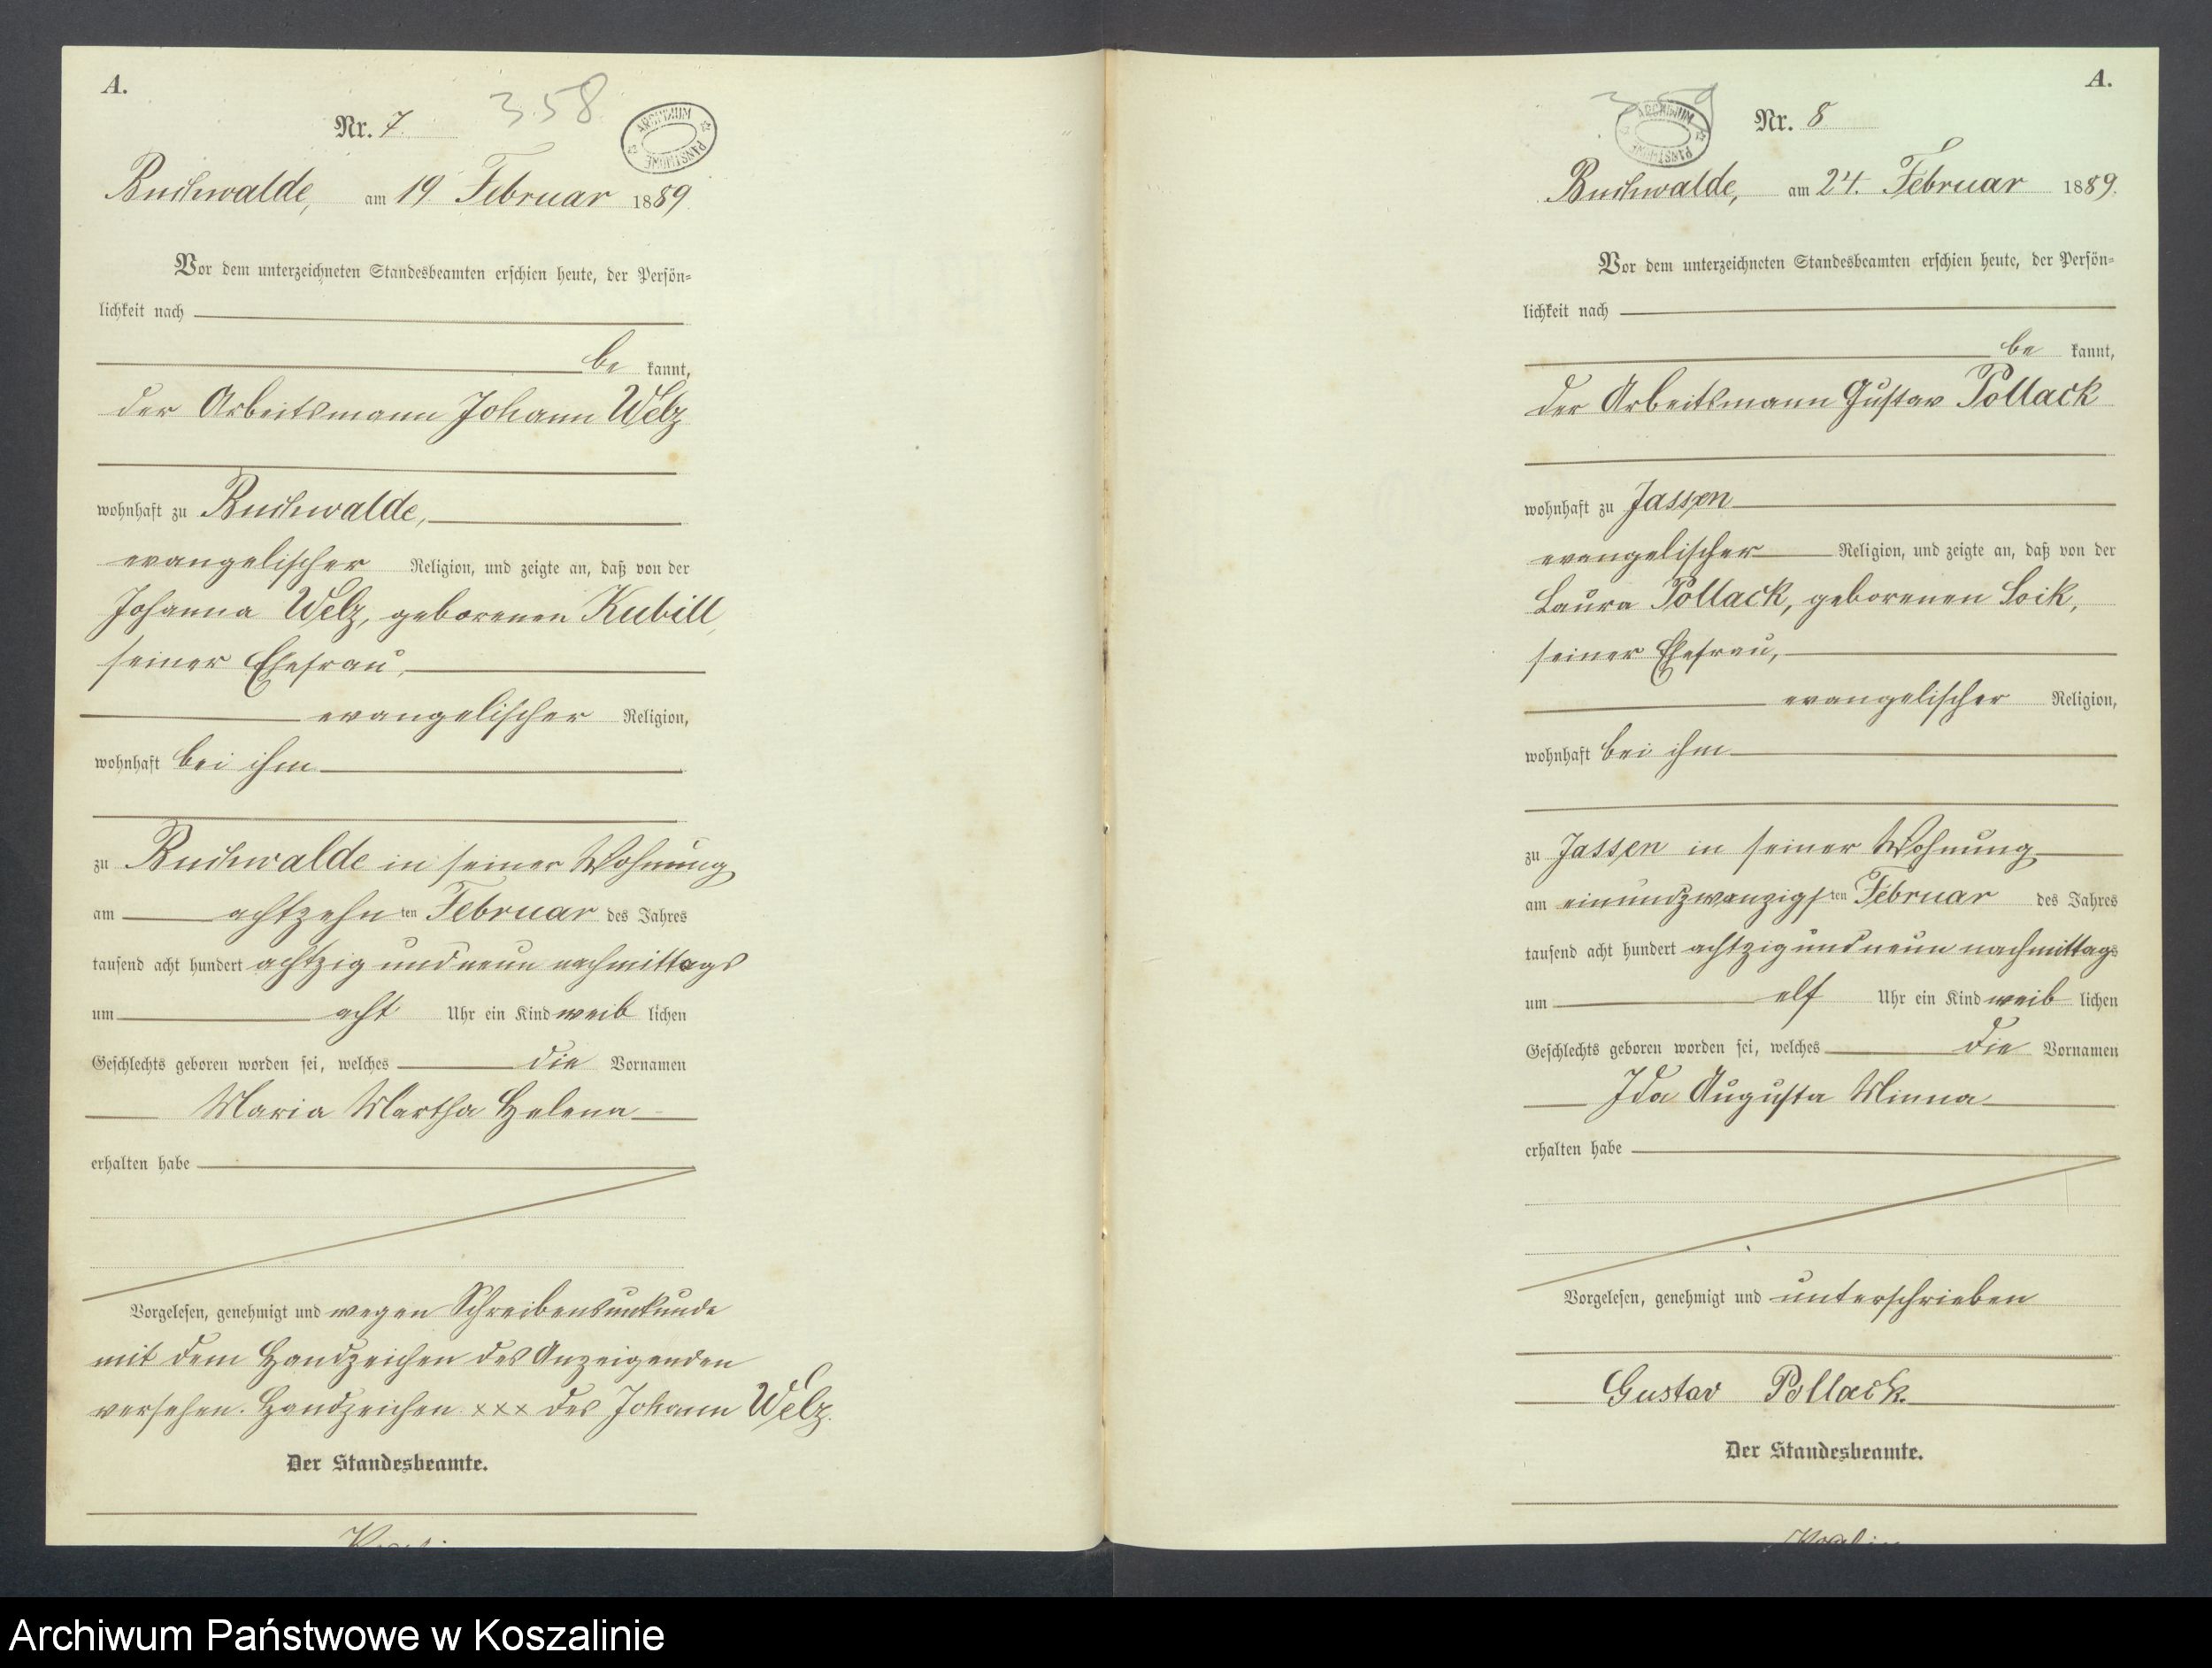 A.
Nr. 7.
358
ARCHIWUM PAŃSTWOWE
Buchwalde, am 19 Februar 1889.
Vor dem unterzeichneten Standesbeamten erschien heute, der Persön=
lichkeit nach
be kannt,
der Arbeitsmann Johann Welz
wohnhaft zu Buchwalde,
evangelischer Religion, und zeigte an, daß von der
Johanna Welz, geborenen Kubill,
seiner Ehefrau,
evangelischer Religion,
wohnhaft bei ihm
zu Buchwalde in seiner Wohnung
am achtzehn ten Februar des Jahres
tausend acht hundert achtzig und neun nachmittags
um acht Uhr ein Kind weib lichen
Geschlechts geboren worden sei, welches die Vornamen
Maria Martha Helena
erhalten habe
Vorgelesen, genehmigt und wegen Schreibensunkunde
mit dem Handzeichen des Anzeigenden
versehen. Handzeichen xxx des Johann Welz.
Der Standesbeamte.
A.
359
ARCHIWUM PAŃSTWOWE
Nr. 8
Buchwalde, am 24. Februar 1889.
Vor dem unterzeichneten Standesbeamten erschien heute, der Persön=
lichkeit nach
be kannt,
der Arbeitsmann Gustav Pollack
wohnhaft zu Jassen
evangelischer Religion, und zeigte an, daß von der
Laura Pollack, geborenen Loik,
seiner Ehefrau,
evangelischer Religion,
wohnhaft bei ihm
zu Jassen in seiner Wohnung
am einundzwanzigs ten Februar des Jahres
tausend acht hundert achtzig und neun nachmittags
um elf Uhr ein Kind weib lichen
Geschlechts geboren worden sei, welches die Vornamen
Ida Augusta Minna
erhalten habe
Vorgelesen, genehmigt und unterschrieben
Gustav Pollack.
Der Standesbeamte.
Archiwum Państwowe w Koszalinie